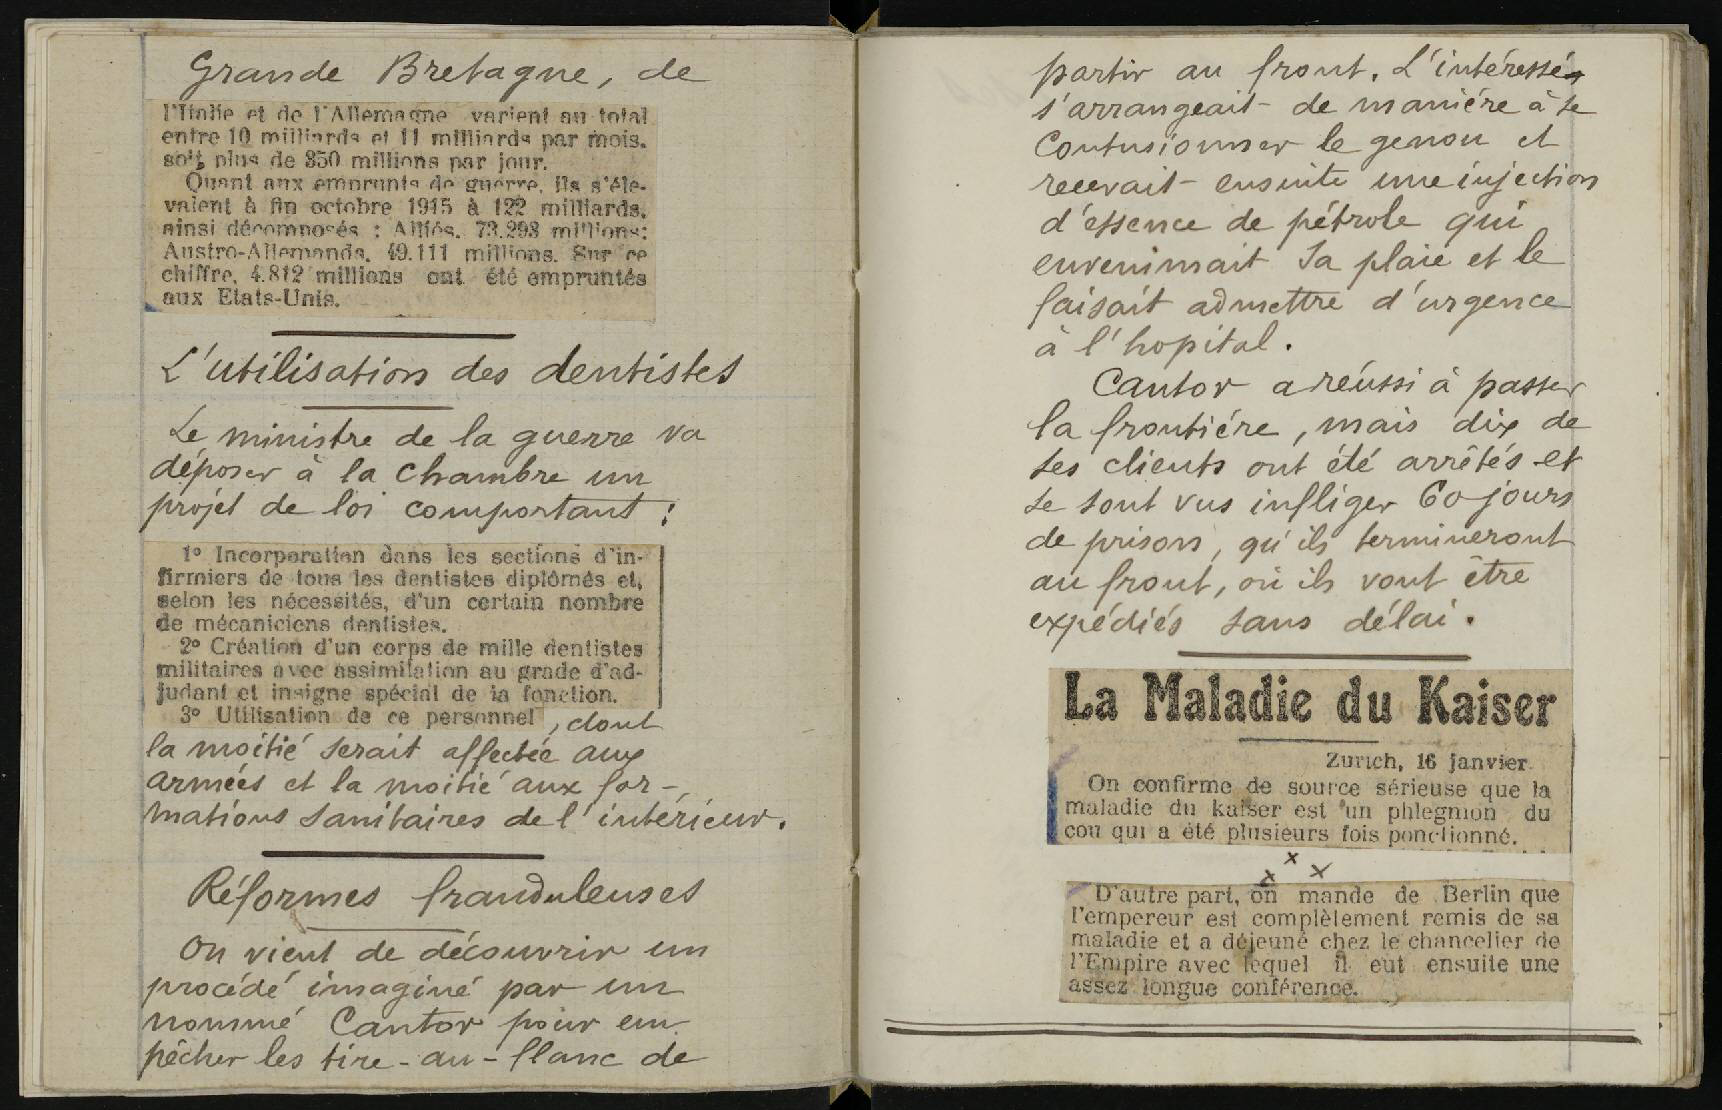 Grande Bretagne, de
l'Italie et de l'Allemagne varient au total
entre 10 milliards et 11 milliards par mois,
soit plus de 350 millions par jour.
Quant aux emprunts de guerre, ils s'éle-
vaient à fin octobre 1915 à 122 milliards,
ainsi décomposés : Alliés, 73.293 millions;
Austro-Allemands, 49.111 millions. Sur ce
chiffre, 4.812 millions ont été empruntés
aux Etats-Unis.
L'utilisation des dentistes
Le ministre de la guerre va
déposer à la Chambre un
projet de loi comportant :
1° Incorporation dans les sections d'in-
firmiers de tous les dentistes diplômés et,
selon les nécessités, d'un certain nombre
de mécaniciens dentistes.
2° Création d'un corps de mille dentistes
militaires avec assimilation au grade d'ad-
judant et insigne spécial de la fonction.
3° Utilisation de ce personnel, dont
la moitié serait affectée aux
armées et la moitié aux for-
mations sanitaires de l'intérieur.
Réformes frauduleuses
On vient de découvrir un
procédé imaginé par un
nommé Cantor pour em
pêcher les tire-au-flanc de
partir au front. L'intéressé
s'arrangeait de manière à se
contusionner le genou et
recevait ensuite une injection
d'essence de pétrole qui
envenimait sa plaie et le
faisait admettre d'urgence
à l'hopital.
Cantor a réussi à passer
la frontière, mais dix de
ses clients ont été arrêtés et
se sont vus infliger 60 jours
de prison, qu'ils termineront
au front, où ils vont être
expédiés sans délai.
La Maladie du Kaiser
Zurich, 16 janvier.
On confirme de source sérieuse que la
maladie du kaiser est un phlegmon du
cou qui a été plusieurs fois ponctionné.
x x x
D'autre part, on mande de Berlin que
l'empereur est complètement remis de sa
maladie et a déjeuné chez le chancelier de
l'Empire avec lequel il eut ensuite une
assez longue conférence.